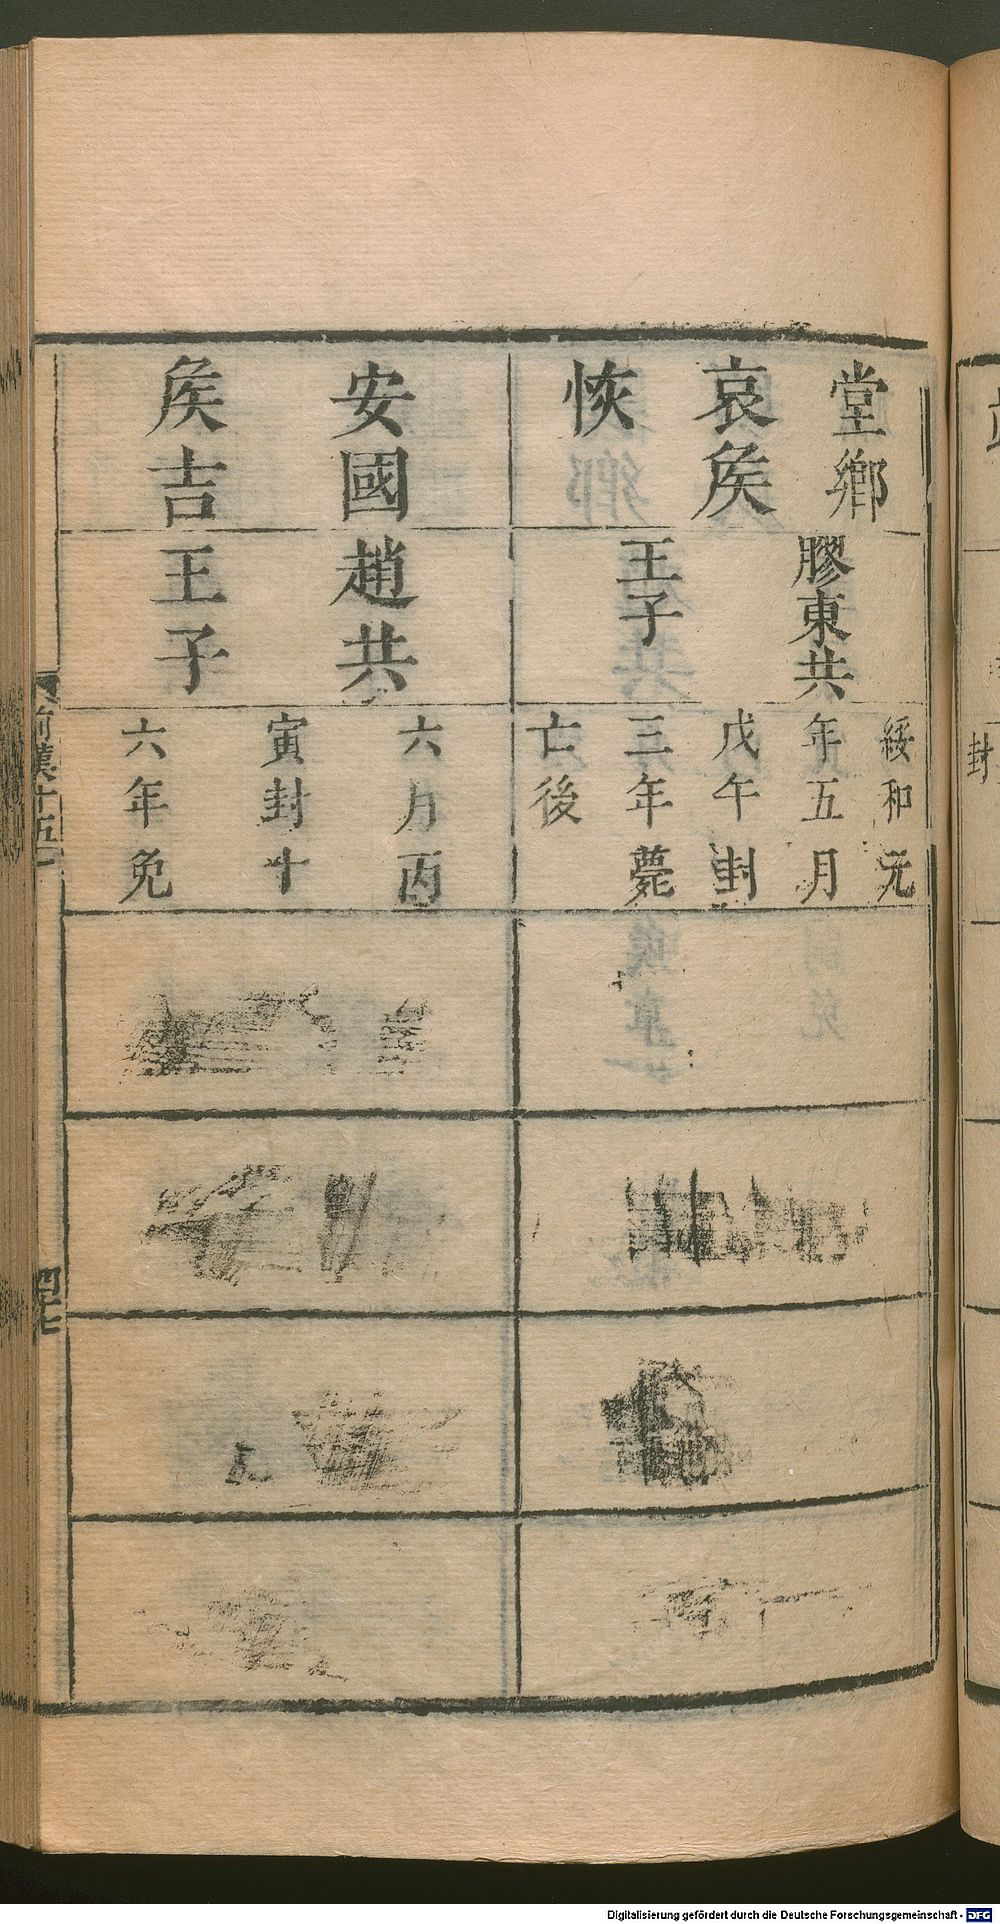 堂鄉
哀矦
恢
膠東共
王子
綏和元
年五月
戊午封
三年薨
亡後
安國
矦吉
趙共
王子
六月丙
寅封十
六年免
前漢十五
四十七
封
Digitalisierung gefördert durch die Deutsche Forschungsgemeinschaft - DFG